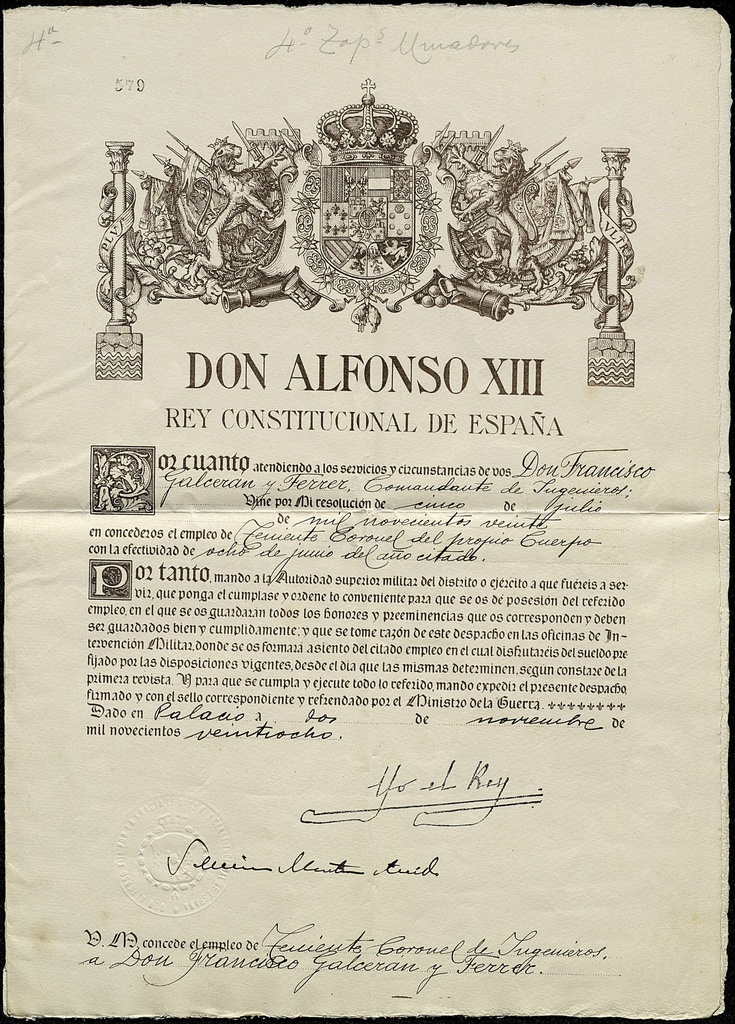 4ª
4º Zapˢ Minadores
579
PLVS VLTRA
DON ALFONSO XIII
REY CONSTITUCIONAL DE ESPAÑA
Por cuanto atendiendo a los servicios y circunstancias de vos Don Francisco
Galceran y Ferrer, Comandante de Ingenieros;
Vine por Mi resolución de cinco de julio
de mil novecientos veinte
en concederos el empleo de Teniente Coronel del propio Cuerpo
con la efectividad de ocho de junio del año citado.
Por tanto, mando a la Autoridad superior militar del distrito o ejército a que fuéreis a ser-
vir, que ponga el cúmplase y ordene lo conveniente para que se os dé posesión del referido
empleo, en el que se os guardarán todos los honores y preeminencias que os corresponden y deben
ser guardados bien y cumplidamente; y que se tome razón de este despacho en las oficinas de In-
tervención Militar, donde se os formará asiento del citado empleo en el cual disfrutaréis del sueldo pre
fijado por las disposiciones vigentes, desde el día que las mismas determinen, según constare de la
primera revista. Y para que se cumpla y ejecute todo lo referido, mando expedir el presente despacho,
firmado y con el sello correspondiente y refrendado por el Ministro de la Guerra.
Dado en Palacio a dos de noviembre de
mil novecientos veintiocho.
Yo el Rey
V. M. concede el empleo de Teniente Coronel de Ingenieros,
a Don Francisco Galceran y Ferrer.